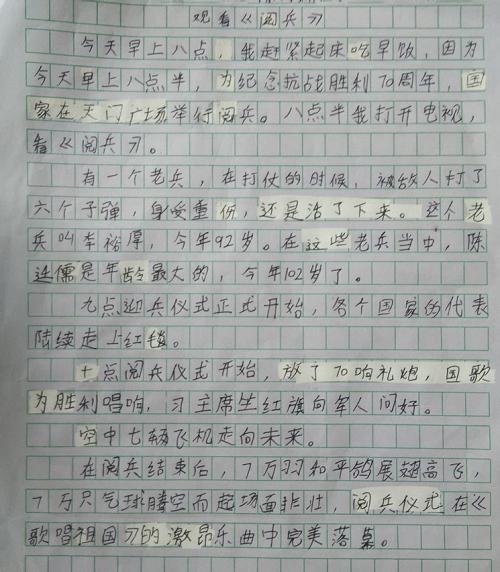 观看《阅兵》
今天早上八点，我赶紧起床吃早饭，因为
今天早上八点半，为纪念抗战胜利70周年，国
家在天门广场举行阅兵。八点半我打开电视，
看《阅兵》。
有一个老兵，在打仗的时候，被敌人打了
六个子弹，身受重伤，还是活了下来。这个老
兵叫车裕厚，今年92岁。在这些老兵当中，陈
廷儒是年龄最大的，今年102岁了。
九点迎兵仪式正式开始，各个国家的代表
陆续走上红毯。
十点阅兵仪式开始，放了70响礼炮，国歌
为胜利唱响，习主席坐红旗向军人问好。
空中七辆飞机走向未来。
在阅兵结束后，7万羽和平鸽展翅高飞，
7万只气球腾空而起场面非壮，阅兵仪式在《
歌唱祖国》的激昂乐曲中完美落幕。